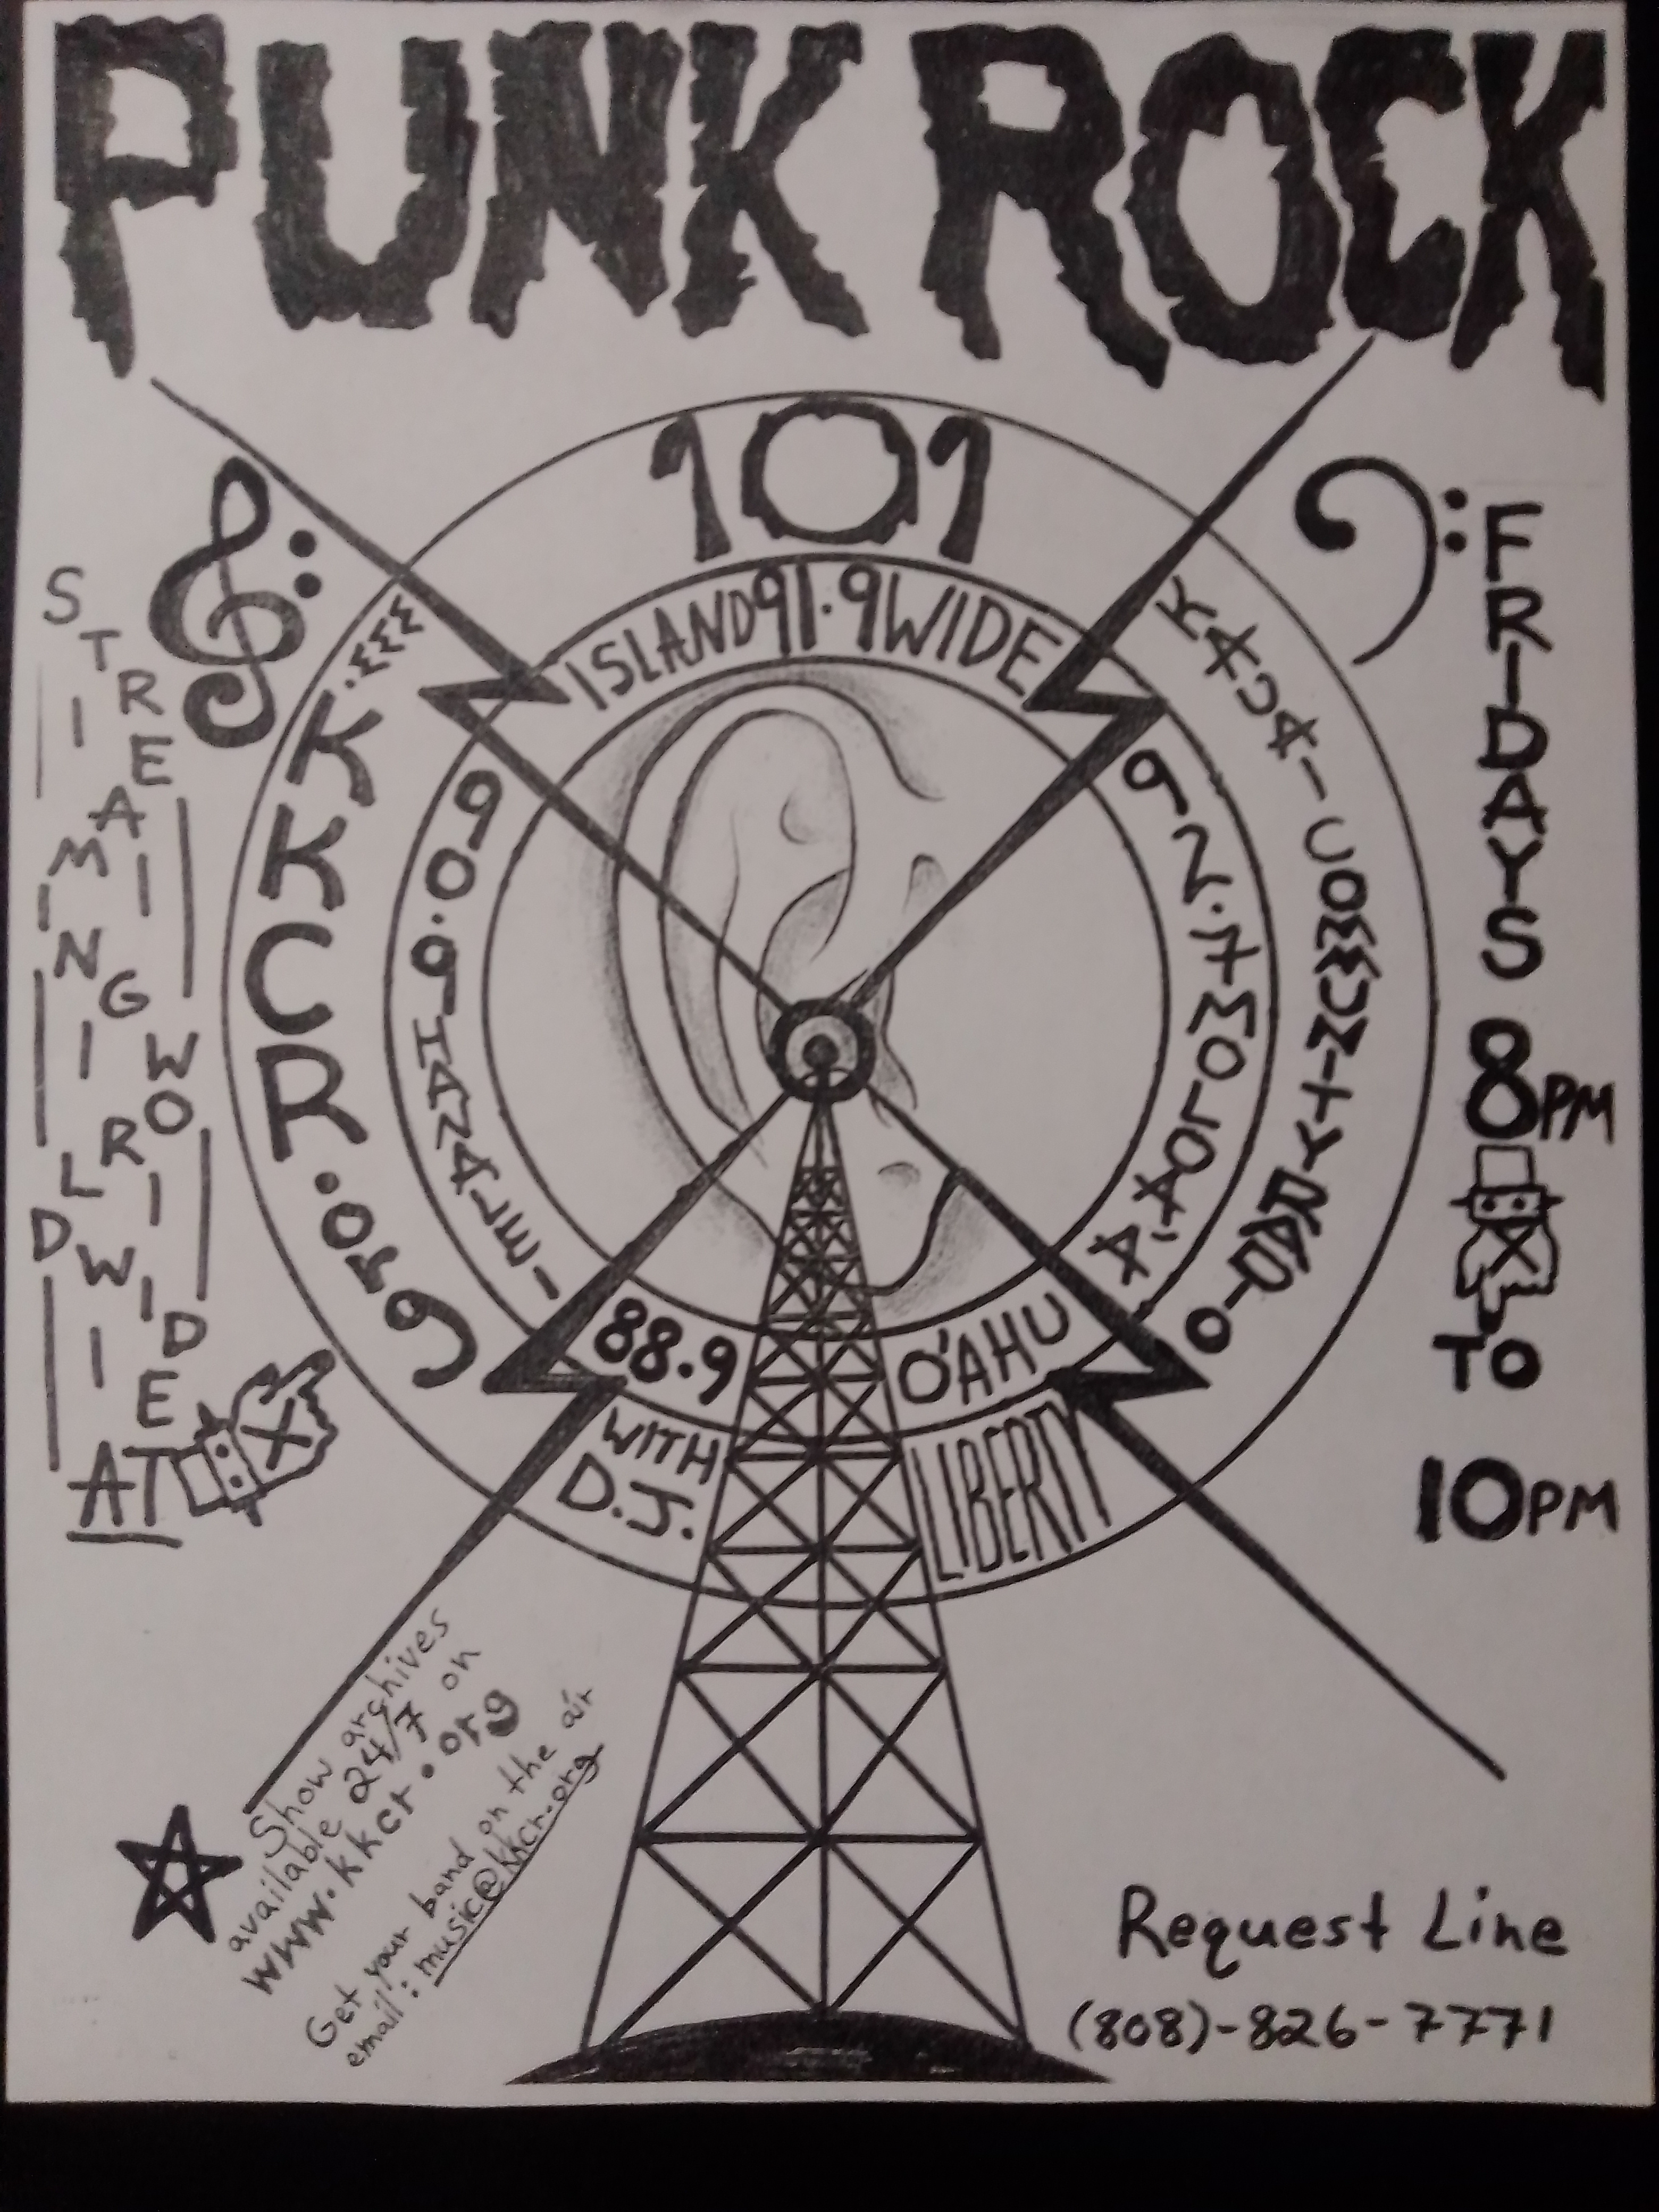 PUNK ROCK
101
ISLAND 91.9 WIDE
WWW.KKCR.org
KAUA'I COMMUNITY RADIO
90.9 HANALEI
92.7 MOLOA'A
88.9 O'AHU
WITH D.J. LIBERTY
STREAMING WORLDWIDE
AT
FRIDAYS 8PM
TO
10PM
Show archives
available 24/7 on
www.kkcr.org
Get your band on the air
email: music@kkcr.org
Request Line
(808)-826-7771